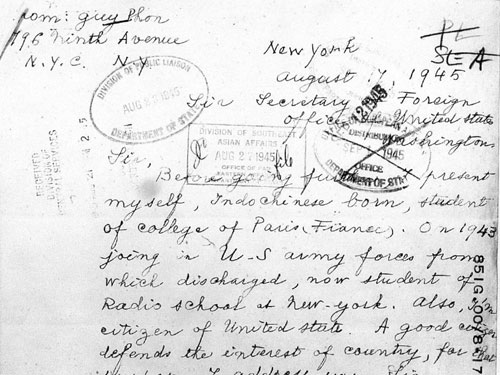 From: guy Phor
796 Ninth Avenue
N.Y.C. N.Y.
New York
August 17, 1945
SEA
DIVISION OF PUBLIC LIAISON
AUG 27 1945
DEPARTMENT OF STATE
Sir Secretary Foreign
Office United state
Washington
DIVISION OF SOUTHEAST
ASIAN AFFAIRS
AUG 27 1945
file
1945
OFFICE
DEPARTMENT OF STATE
Sir,
Before going present
myself, Indochinese born, student
of college of Paris (France). On 1943
joing in U-S army forces from
which discharged, now student of
Radio school at New-york. Also,
citizen of United state. A good citizen
defends the interest of country, for that
I address